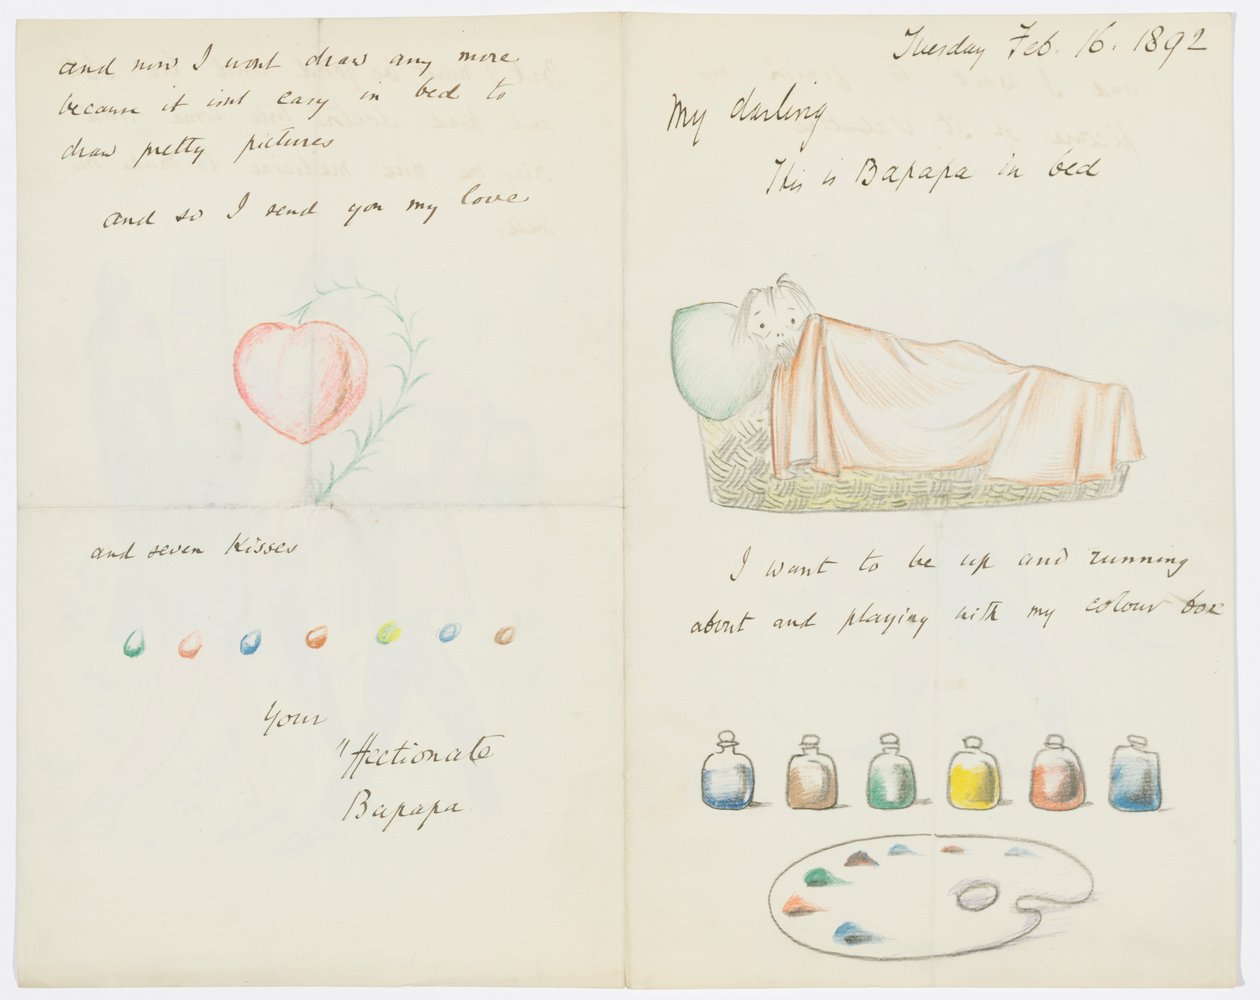 Tuesday Feb. 16. 1892
My darling
This is Bapapa in bed
I want to be up and running
about and playing with my colour box
and now I wont draw any more
because it isnt easy in bed to
draw pretty pictures
and so I send you my love
and seven kisses
Your
Affectionate
Bapapa